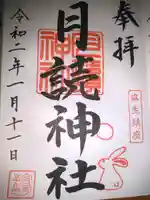 奉拝
月読神社
令和二年一月十一日